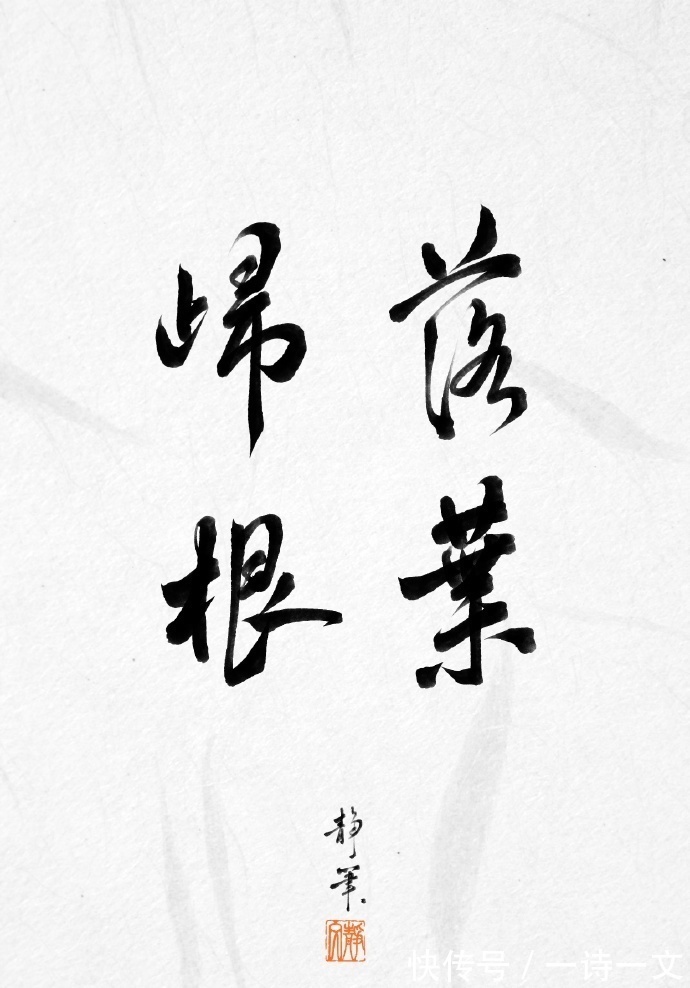 落葉
歸根
静筆
快传号 / 一诗一文